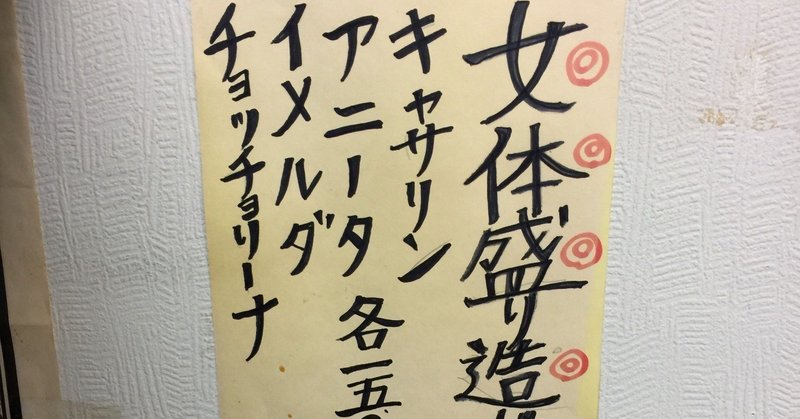 女体盛り造
キャサリン
アニータ 各一五
イメルダ
チョッチョリーナ